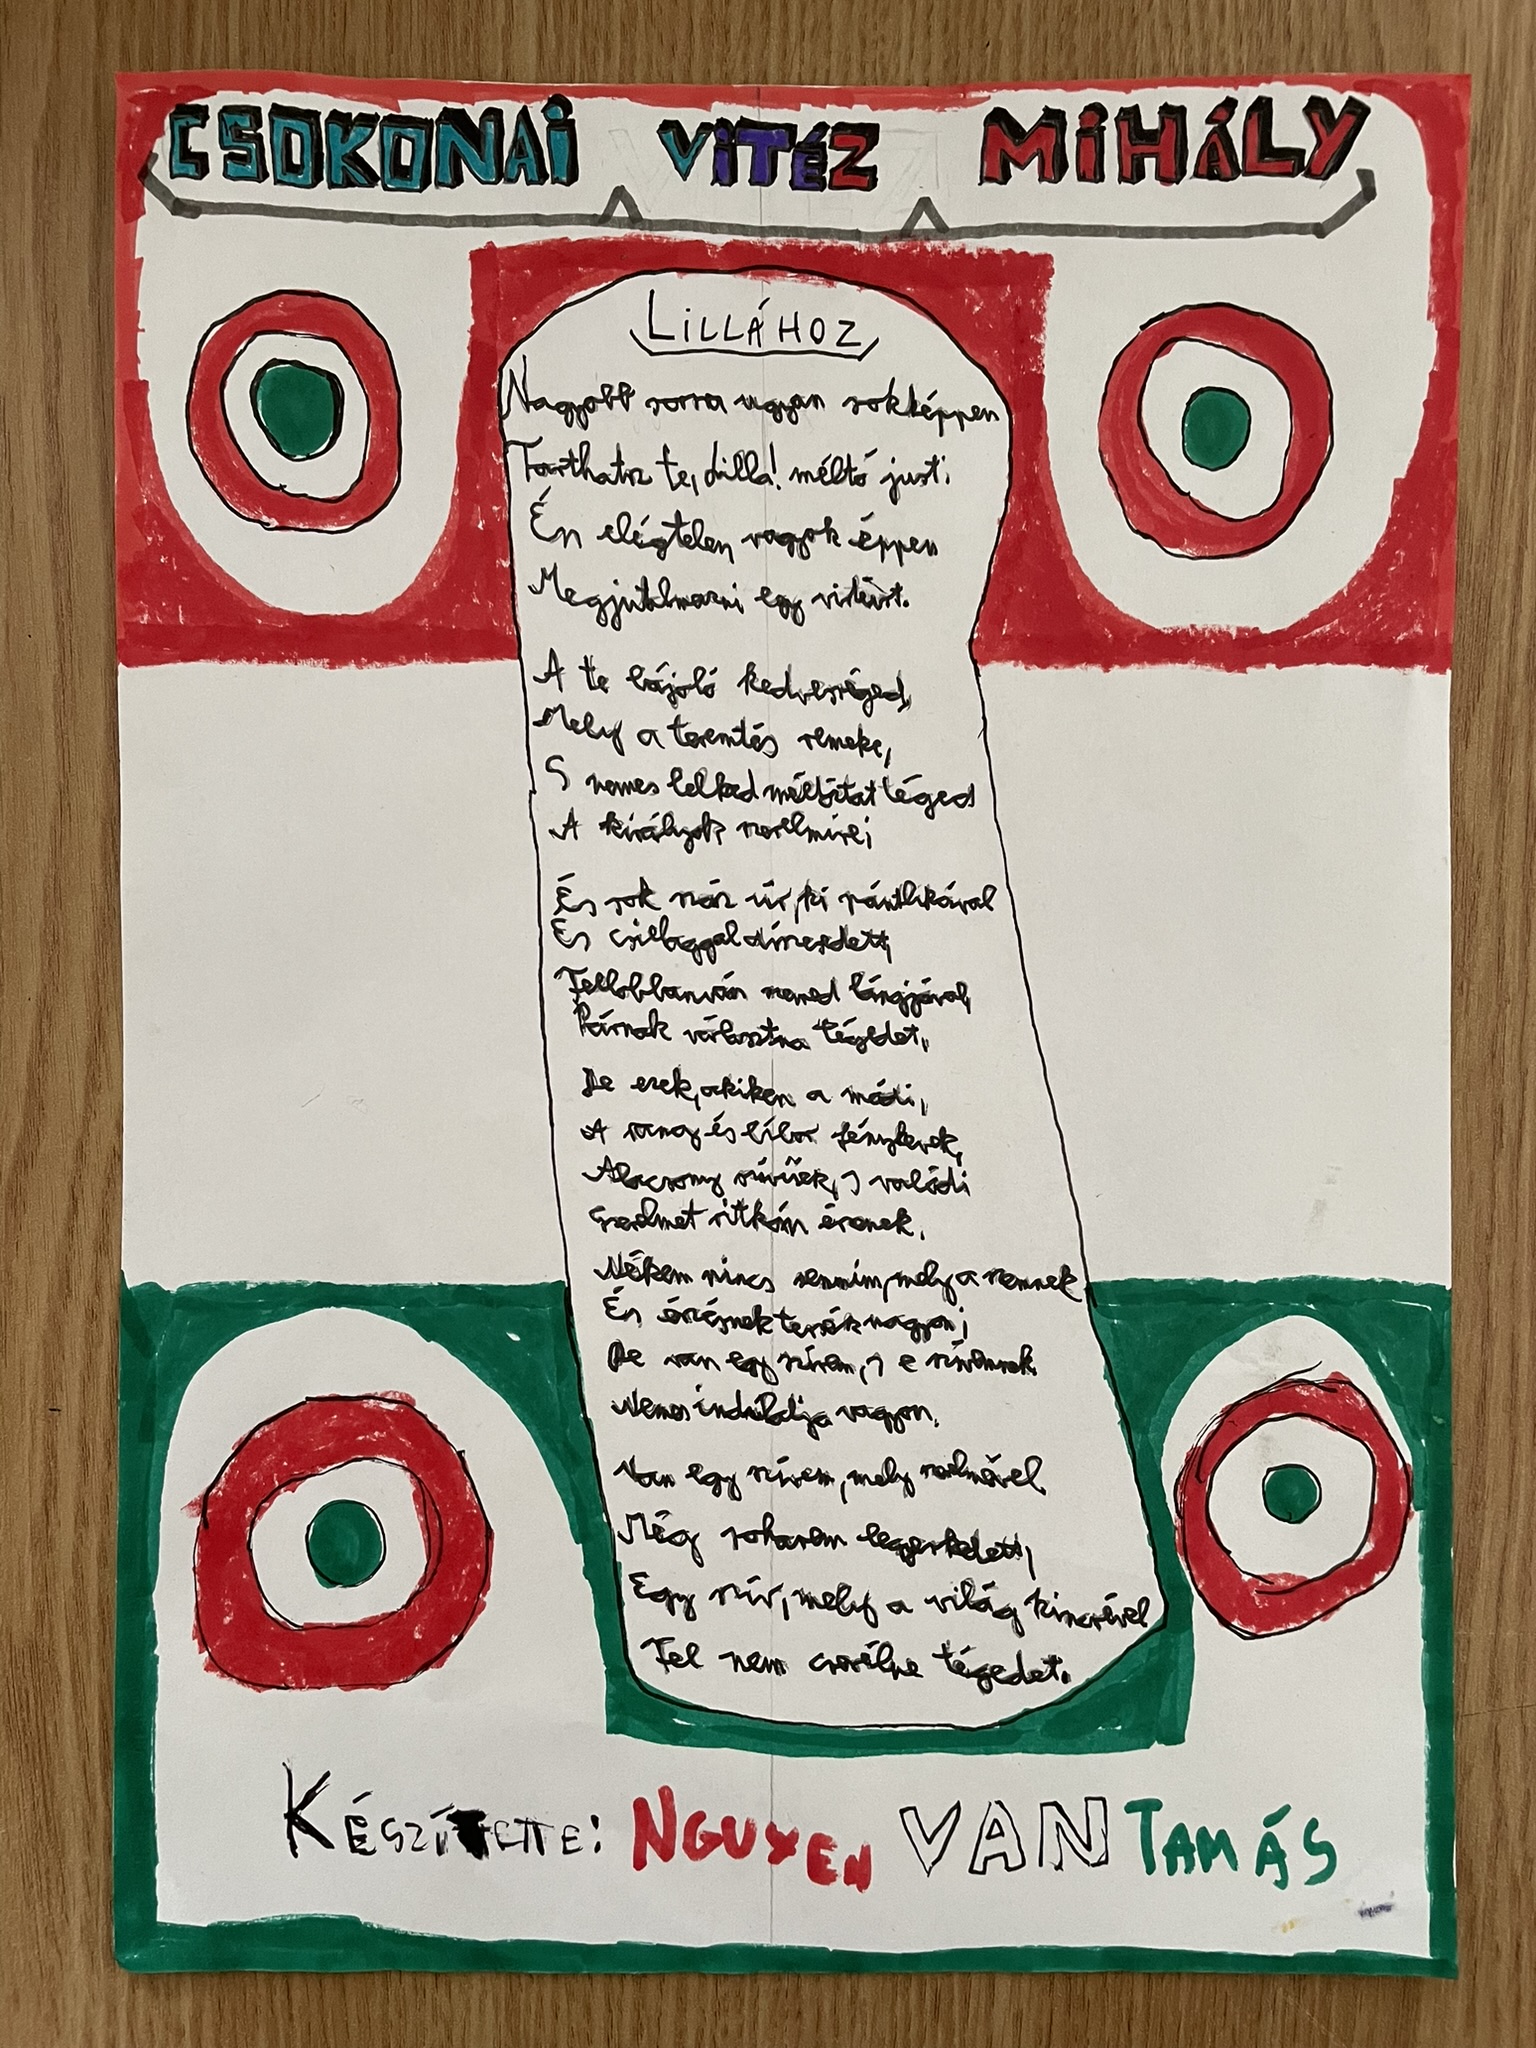 CSOKONAI VITÉZ MIHÁLY
LILLÁHOZ
Nagyobb sorra ugyan sokképpen
Tarthatsz te, Lilla! méltó just;
Én elégtelen vagyok éppen
Megjutalmazni egy
A te bájoló kedvességed,
Mely a teremtés remeke,
S nemes lelked méltóztat téged
A királyok szerelmire;
És sok száz úr, ki pántlikával
És csillaggal díszesedett,
Fellobbanván szemed lángjával,
Párnak választna tégedet.
De ezek, akiken a mádi,
A rang és bíbor fénylenek,
Alacsony szívűek, s valódi
Szerelmet ritkán éreznek.
Nékem nincs semmim, mely a szemnek
És érzésnek tessék nagyon;
De van egy szívem, s e szívemnek
Nemes indúlatja vagyon.
Van egy szívem, mely szerelmével
Még soha sem legyeskedett,
Egy szív, mely a világ kincsével
Fel nem cserélne tégedet.
KÉSZÍTETTE: NGUYEN VAN TAMÁS